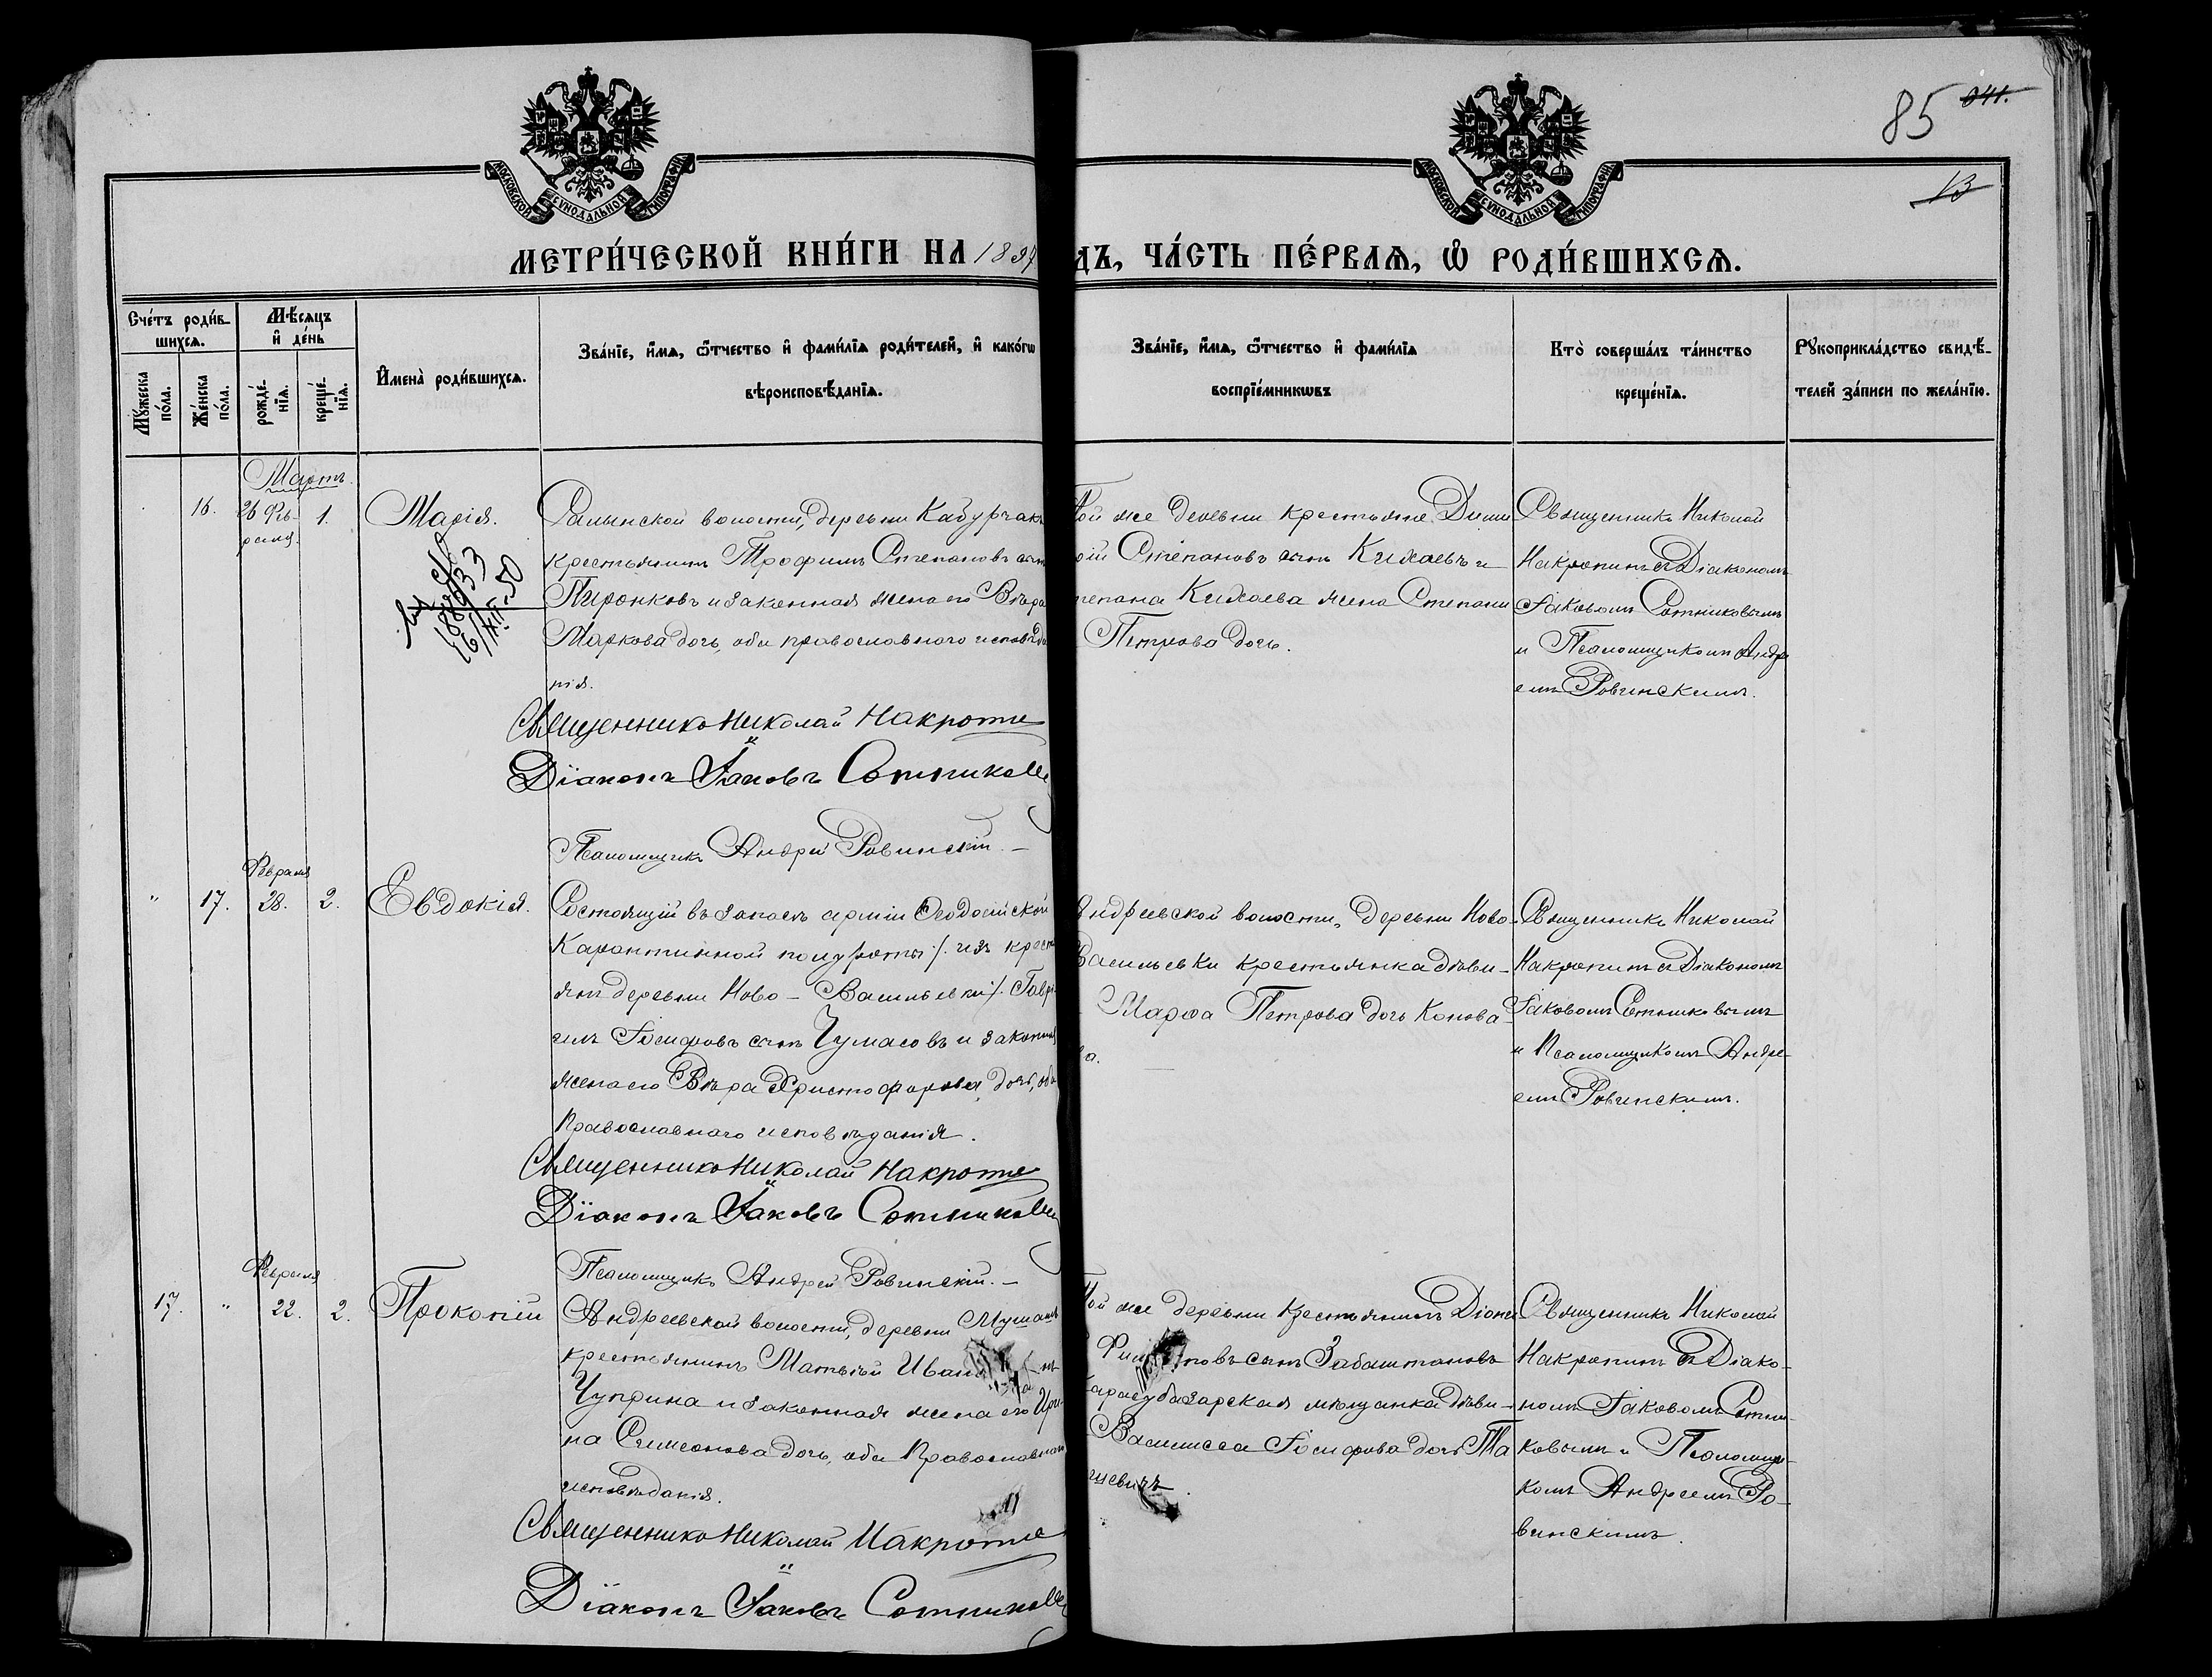 85 041.
13
МОСКОВСКОЙ СУНОДАЛЬНОЙ ТИПОГРАФІИ
МОСКОВСКОЙ СУНОДАЛЬНОЙ ТИПОГРАФІИ
МЕТРИ́ЧЕСКОЙ КНИ́ГИ НА 1897
ДЪ, ЧА́СТЬ ПЕ́РВАѦ, Ѡ РОДИ́ВШИХСѦ.
Сче́тъ роди́в-
шихсѧ.
Мꙋжеска по́ла.
Же́нска по́ла.
Мѣ́сѧцъ
и де́нь
рожде́-
нїѧ.
креще́-
нїѧ.
Имена̀ роди́вшихсѧ.
Зва́нїе, и́мѧ, ѻ́тчество и фами́лїѧ роди́телей, и како́гѡ
вѣроисповѣ́данїѧ.
Зва́нїе, и́мѧ, ѻ́тчество и фами́лїѧ
воспрїе́мникѡвъ
Кто̀ соверша́лъ та́инство
креще́нїѧ.
Рꙋкоприкла́дство свидѣ́-
телей за́писи по жела́нїю.
Мартъ.
16. 26 Фев-
раля. 1. Марія.
16/XII-50
Салынской волости, деревни Кабурчакъ
крестьянинъ Трофимъ Степановъ сынъ
Пиронковъ и законная жена его Вѣра
Маркова дочь, оба православнаго исповѣда
нія.
Священникъ Николай Накропи
Діаконъ Іаковъ Сотникове
Псаломщикъ Андрей Ровинскій. —
Той же деревни крестьяне Дими
рій Степановъ сынъ Кижаевъ и
тепана Кижаева жена Степани
Петрова дочь.
Священникъ Николай
Накропинъ съ Діакономъ
Іаковомъ Сотниковымъ
и Псаломщикомъ Андре
емъ Ровинскимъ.
Февраля
" 17. 28. 2. Евдокія.
Состоящій въ запасѣ арміи Ѳеодосійской
Карантинной полуроты /. изъ крест
янъ деревни Ново-Васильевки /. Гаврі
илъ Іосифовъ сынъ Чумасовъ и законная
жена его Вѣра Христофорова дочь, оба
Православнаго исповѣданія.
Священникъ Николай Накропи
Діаконъ Іаковъ Сотникове
Псаломщикъ Андрей Ровинскій. —
Андреевской волости, деревни Ново-
Васильевки крестьянка дѣви-
Марѳа Петрова дочь Конова-
ва.
Священникъ Николай
Накропинъ съ Діакономъ
Іаковомъ Сотниковымъ
и Псаломщикомъ Андре-
емъ Ровинскимъ.
Февраля
17. " 22. 2. Прокопій
Андреевской волости, деревни Мушашъ
крестьянинъ Матѳій Иван
Чуприна и законная жена его Ири-
на Симеонова дочь, оба Православнаго
исповѣданія.
Священникъ Николай Накропи
Діаконъ Іаковъ Сотникове
Той же деревни крестьянинъ Діони
Фил повъ сынъ Забаштановъ
Карасубазарская мѣщанка дѣви-
Василисса Іосифова дочь Та
шевичъ.
Священникъ Николай
Накропинъ съ Діако-
номъ Іаковомъ Сотни-
ковымъ и Псаломщи-
комъ Андреемъ Ро-
винскимъ.